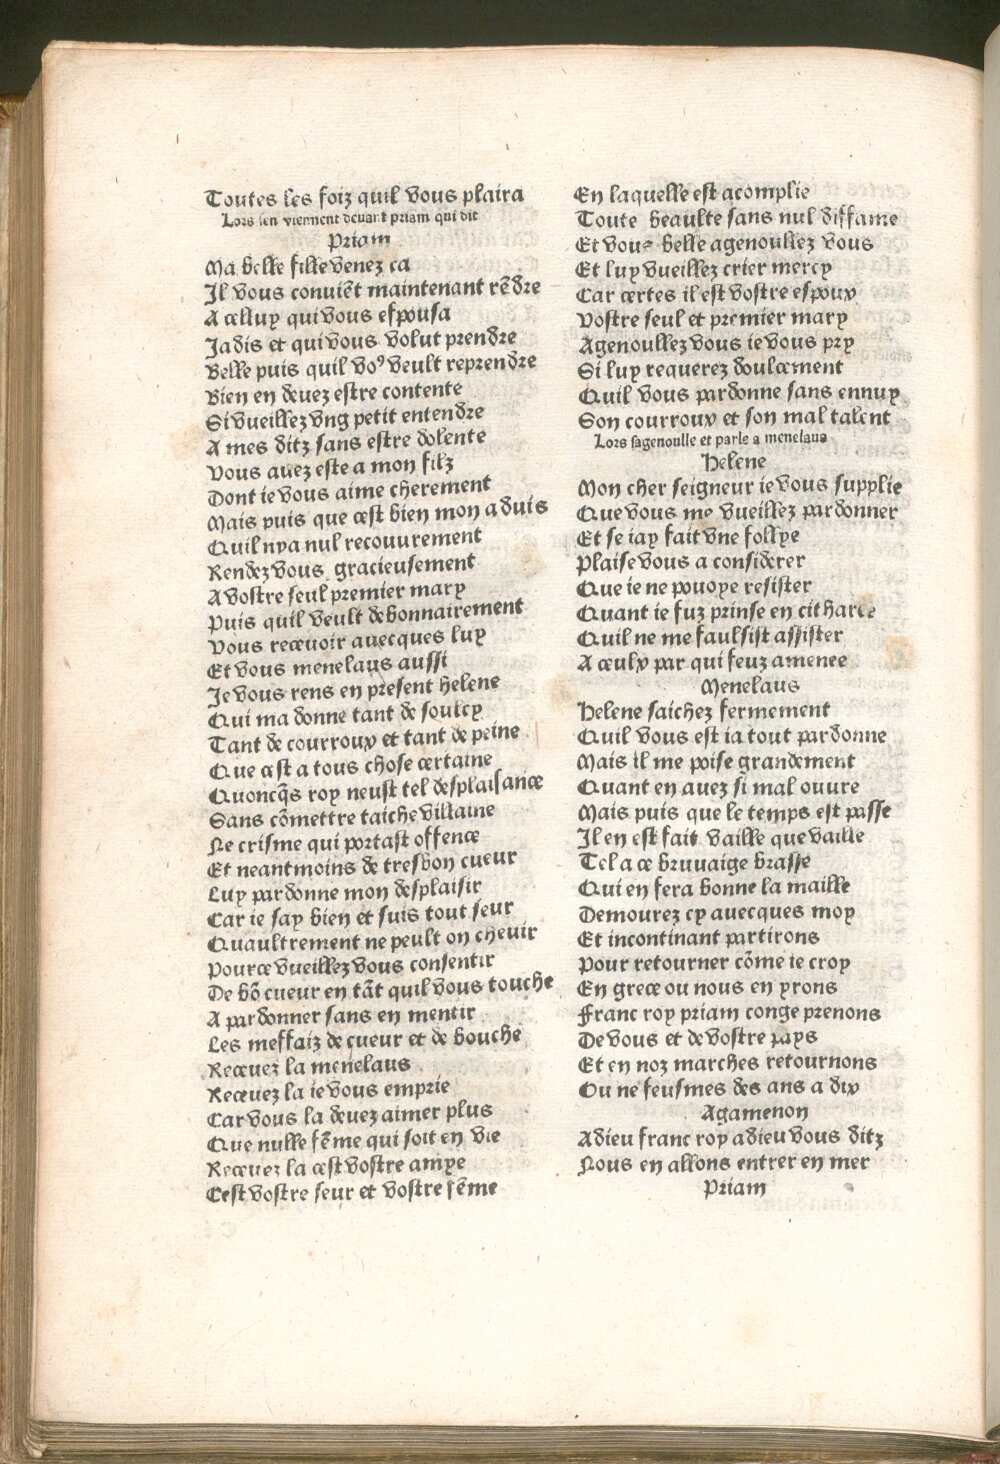 Toutes les foiz quil vous plaira
Lors sen viennent deuant priam qui dit
Priam
Ma belle fille venez ca
Il vous conuiēt maintenant rēdre
A celluy qui vous espousa
Jadis et qui vous volut prendre
Belle puis quil voꝰ veult reprendre
Bien en deuez estre contente
Si vueillez vng petit entendre
A mes ditz sans estre dolente
Vous auez este a mon filz
Dont ie vous aime cherement
Mais puis que cest bien mon aduis
Quil nya nul recouurement
Rendez vous gracieusement
A vostre seul premier mary
Puis quil veult debonnairement
Vous receuoir auecques luy
Et vous menelaus aussi
Je vous rens en present helene
Qui ma donne tant de soulcy
Tant de courroux et tant de peine
Que cest a tous chose certaine
Quoncq̄s roy neust tel desplaisance
Sans cōmettre taiche villaine
Ne crisme qui portast offence
Et neantmoins de tresbon cueur
Luy pardonne mon desplaisir
Car ie say bien et suis tout seur
Quaultrement ne peult on cheuir
Pource vueillez vous consentir
De bō cueur en tāt quil vous touche
A pardonner sans en mentir
Les meffaiz de cueur et de bouche
Receuez la menelaus
Receuez la ie vous emprie
Car vous la deuez aimer plus
Que nulle fēme qui soit en vie
Receuez la cest vostre amye
Cest vostre seur et vostre fēme
En laquelle est acomplie
Toute beaulte sans nul diffame
Et vous belle agenoullez vous
Et luy vueillez crier mercy
Car certes il est vostre espoux
Vostre seul et premier mary
Agenoullez vous ie vous pry
Si luy requerez doulcement
Quil vous pardonne sans ennuy
Son courroux et son mal talent
Lors sagenoulle et parle a menelaus
Helene
Mon cher seigneur ie vous supplie
Que vous me vueillez pardonner
Et se iay fait vne follye
Plaise vous a considerer
Que ie ne pouoye resister
Quant ie fuz prinse en citharee
Quil ne me faulsist assister
A ceulx par qui feuz amenee
Menelaus
Helene saichez fermement
Quil vous est ia tout pardonne
Mais il me poise grandement
Quant en auez si mal ouure
Mais puis que le temps est passe
Il en est fait vaille que vaille
Tel a ce bruuaige brasse
Qui en fera bonne la maille
Demourez cy auecques moy
Et incontinant partirons
Pour retourner cōme ie croy
En grece ou nous en yrons
Franc roy priam conge prenons
De vous et de vostre pays
Et en noz marches retournons
Ou ne feusmes des ans a dix
Agamenon
Adieu franc roy adieu vous ditz
Nous en allons entrer en mer
Priam